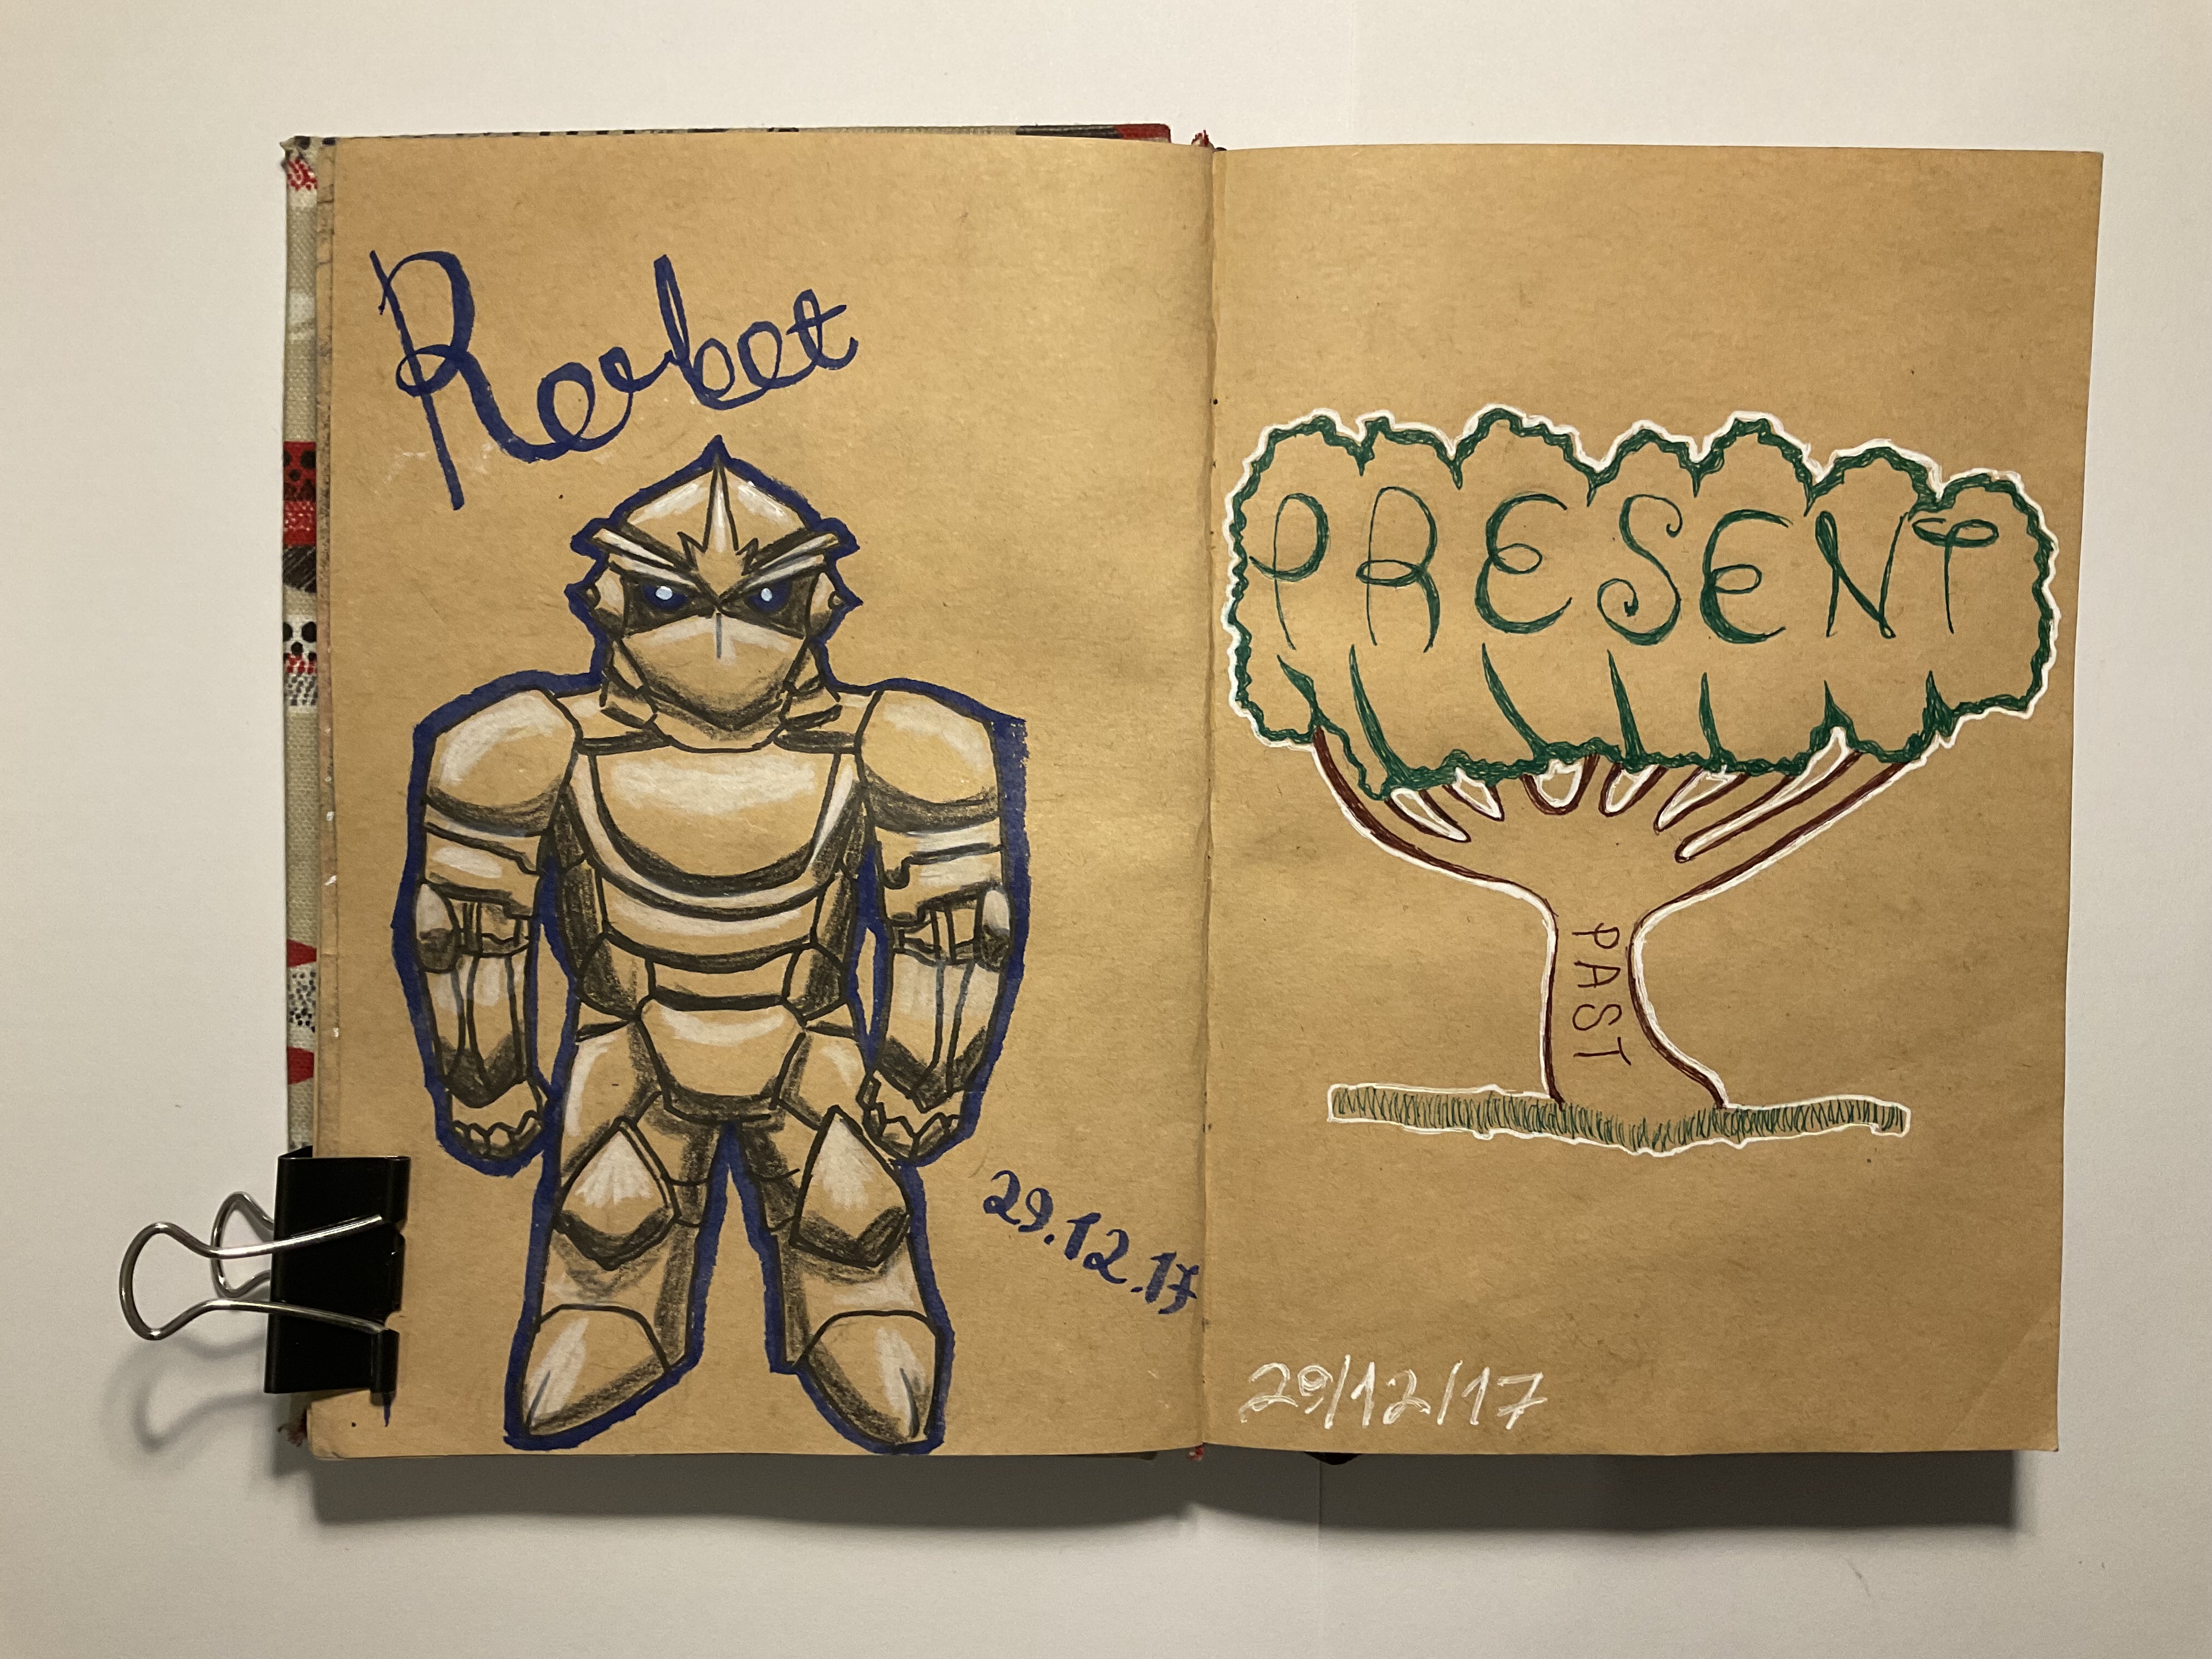 Robot
29.12.17
PRESENT
PAST
29/12/17